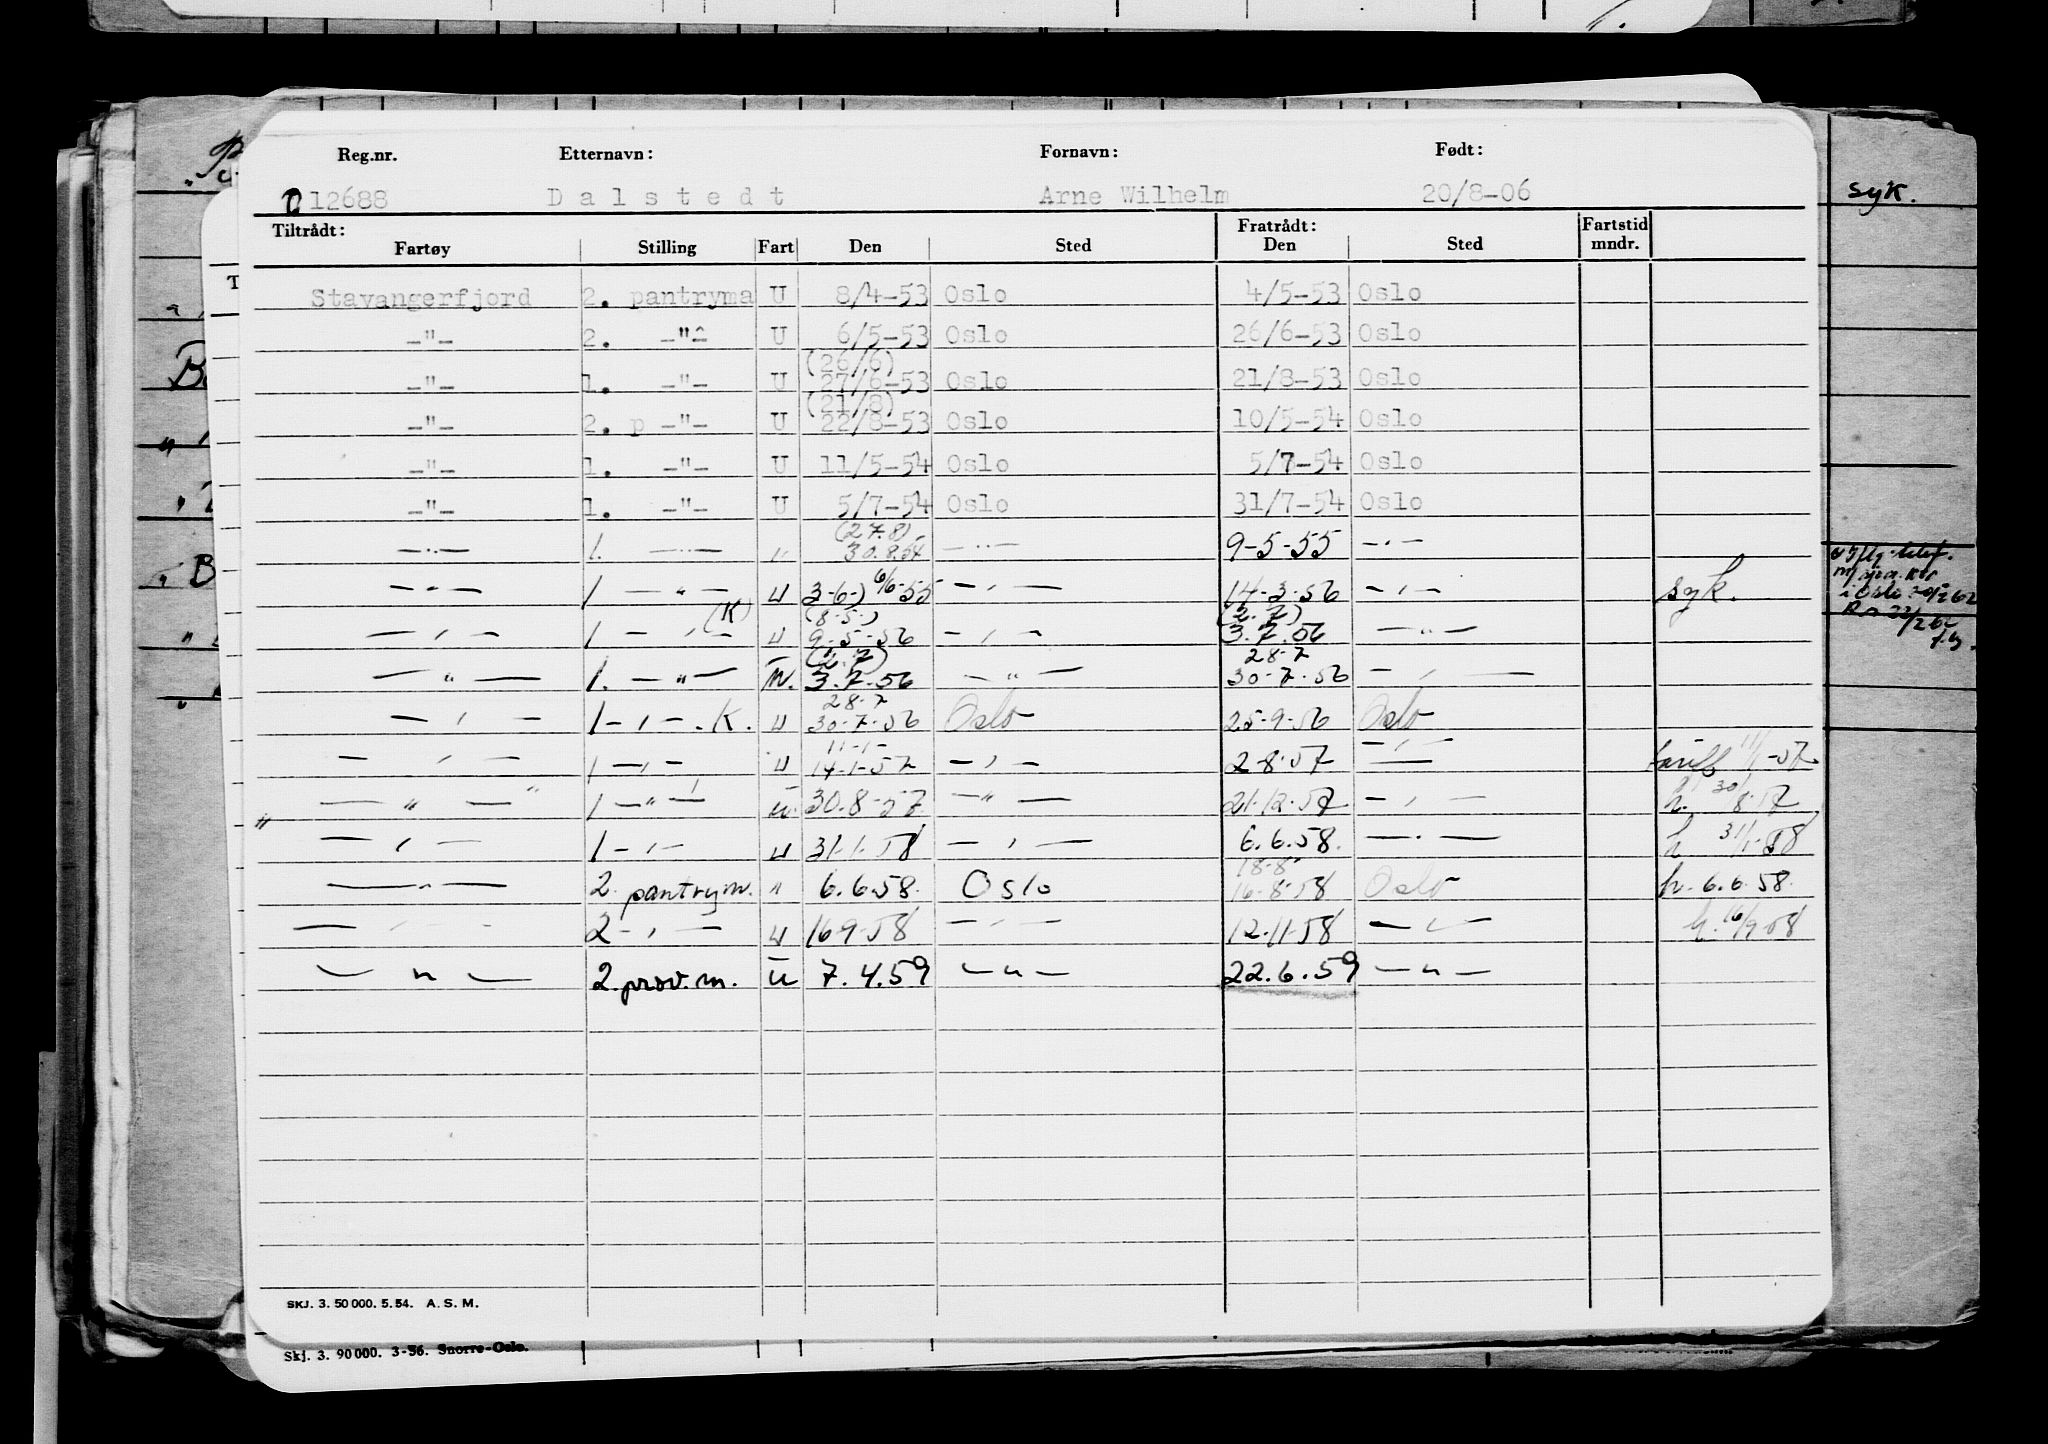 syk.
Reg.nr. Etternavn: Fornavn: Født:
12688 Dalstedt Arne Wilhelm 20/8-06
Tiltrådt: Fratrådt: Fartstid
Fartøy Stilling Fart Den Sted Den Sted mndr.
Stavangerfjord 2. pantryma U 8/4-53 Oslo 4/5-53 Oslo
-"- 2. -"- U 6/5-53 Oslo 26/6-53 Oslo
(26/6)
-"- 1. -"- U 27/6-53 Oslo 21/8-53 Oslo
(21/8)
-"- 2. p -"- U 22/8-53 Oslo 10/5-54 Oslo
-"- 1. -"- U 11/5-54 Oslo 5/7-54 Oslo
-"- 1. -"- U 5/7-54 Oslo 31/7-54 Oslo
(27.8)
-"- 1. -"- " 30.8.54 -"- 9-5-55 -"-
-"- 1 -"- U 3-6-) 6/6-55 -"- 14-3-56 -"- syk.
(K) (8-5-) (2.7)
-"- 1 -"- U 9-5-56 -"- 3.7.56 -"-
(2.7) 28-7
-"- 1. -"- U. 3.7.56 -"- 30-7-56 -"-
28-7
-"- 1 -"- K. U 30-7-56 Oslo 25-9-56 Oslo
11-1-
-"- 1 -"- U 14-1-57 -"- 2-8-57 -"- 11/1-57
-"- 1 -"- U. 30.8-57 -"- 21-12-57 -"- h. 30/8-57
-"- 1 -"- U 31-1-58 -"- 6.6.58. -"- h 31/1-58
18-8-
-"- 2. pantrym. " 6.6.58. Oslo 16-8-58 Oslo h. 6.6.58.
-"- 2 -"- U 16-9-58 -"- 12-11-58 -"- h. 16/9-58
-"- 2. prov.m. U 7.4.59 -"- 22.6.59 -"-
SKJ. 3. 50 000. 5.54. A. S. M.
Skj. 3. 90 000. 3-56. Snorre-Oslo.